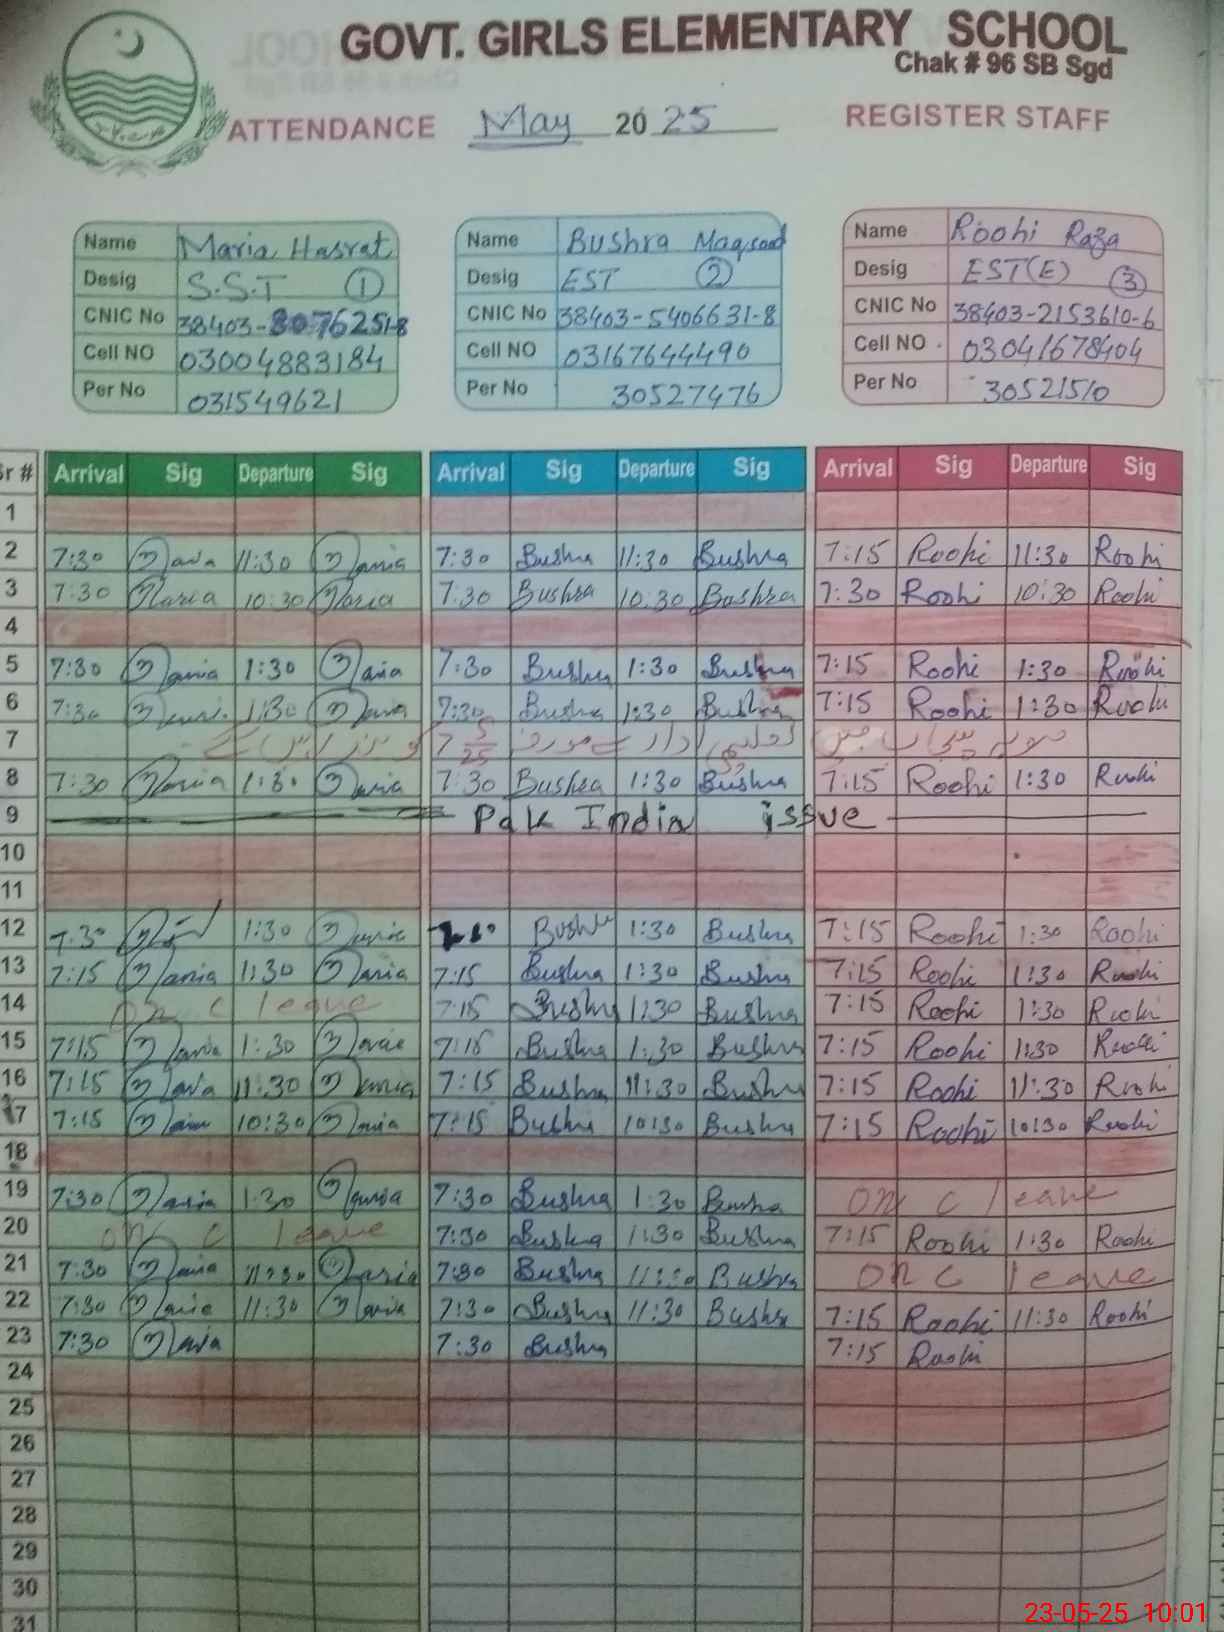 GOVT. GIRLS ELEMENTARY SCHOOL
Chak # 96 SB Sgd
ATTENDANCE May 2025 REGISTER STAFF
Name Maria Hasrat
Desig S.S.T ①
CNIC No 38403-8076251-8
Cell NO 03004883184
Per No 031549621
Name Bushra Maqsood
Desig EST ②
CNIC No 38403-5406631-8
Cell NO 03167644490
Per No 30527476
Name Roohi Raza
Desig EST(E) ③
CNIC No 38403-2153610-6
Cell NO 03041678404
Per No 30521510
Sr # Arrival Sig Departure Sig Arrival Sig Departure Sig Arrival Sig Departure Sig
1
2 7:30 Maria 11:30 Maria 7:30 Bushra 11:30 Bushra 7:15 Roohi 11:30 Roohi
3 7:30 Maria 10:30 Maria 7:30 Bushra 10:30 Bushra 7:30 Roohi 10:30 Roohi
4
5 7:30 Maria 1:30 Maria 7:30 Bushra 1:30 Bushra 7:15 Roohi 1:30 Roohi
6 7:30 Maria 1:30 Maria 7:30 Bushra 1:30 Bushra 7:15 Roohi 1:30 Roohi
7 صوبہ پنجاب میں تعلیمی ادارے مورخہ 7 5/25
8 7:30 Maria 1:30 Maria 7:30 Bushra 1:30 Bushra 7:15 Roohi 1:30 Roohi
9 Pak India issue
10
11
12 7:30 1:30 Maria Bushra 1:30 Bushra 7:15 Roohi 1:30 Roohi
13 7:15 Maria 1:30 Maria 7:15 Bushra 1:30 Bushra 7:15 Roohi 1:30 Roohi
14 on C leave 7:15 Bushra 1:30 Bushra 7:15 Roohi 1:30 Roohi
15 7:15 Maria 1:30 Maria 7:15 Bushra 1:30 Bushra 7:15 Roohi 1:30 Roohi
16 7:15 Maria 11:30 Maria 7:15 Bushra 11:30 Bushra 7:15 Roohi 11:30 Roohi
17 7:15 Maria 10:30 Maria 7:15 Bushra 10:30 Bushra 7:15 Roohi 10:30 Roohi
18
19 7:30 Maria 1:30 Maria 7:30 Bushra 1:30 Bushra on C leave
20 on C leave 7:30 Bushra 1:30 Bushra 7:15 Roohi 1:30 Roohi
21 7:30 Maria 11:30 Maria 7:30 Bushra 11:30 Bushra on C leave
22 7:30 Maria 11:30 Maria 7:30 Bushra 11:30 Bushra 7:15 Roohi 11:30 Roohi
23 7:30 Maria 7:30 Bushra 7:15 Roohi
24
25
26
27
28
29
30
31
23-05-25 10:01